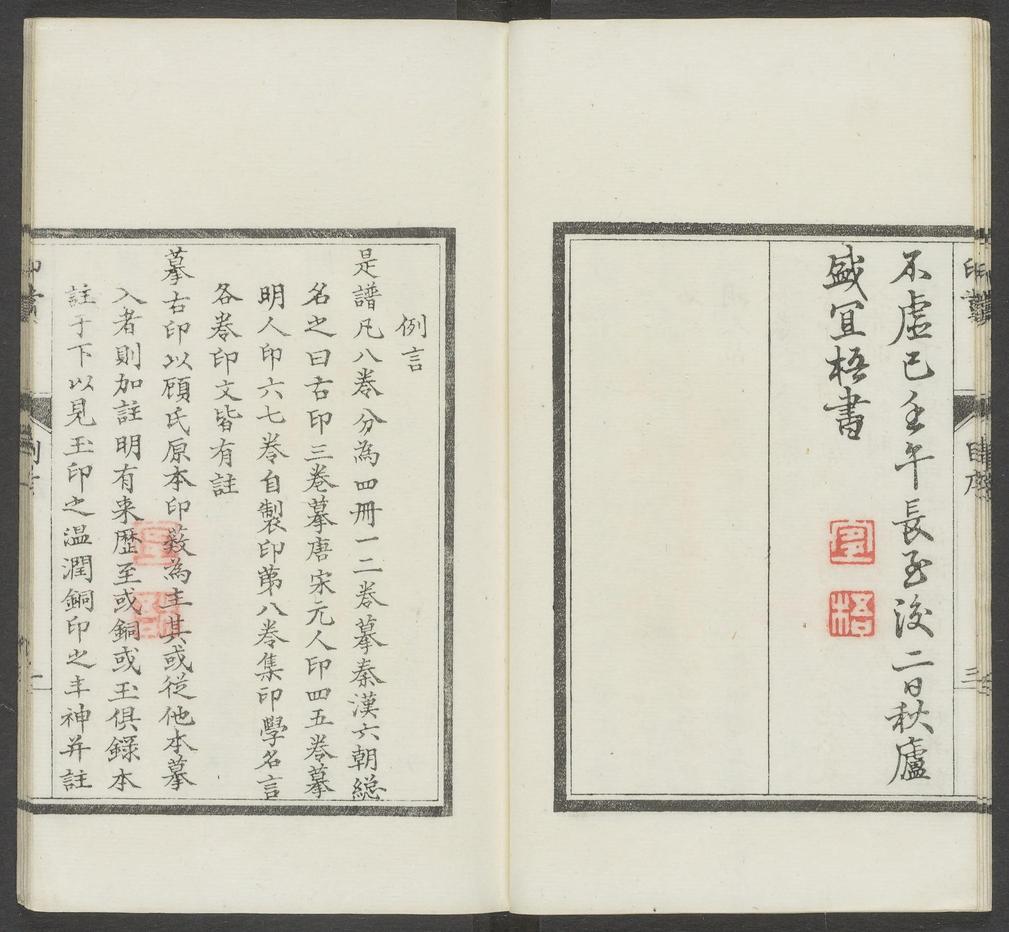 不虛已壬午長至後二日秋廬
盛宜梧書
宜
梧
例言
是譜凡八卷分為四冊一二卷摹秦漢六朝總
名之曰古印三卷摹唐宋元人印四五卷摹
明人印六七卷自製印第八卷集印學名言
各卷印文皆有註
摹古印以顧氏原本印薮為主其或從他本摹
入者則加註明有來歷至或銅或玉俱錄本
註于下以見玉印之温潤銅印之丰神并註